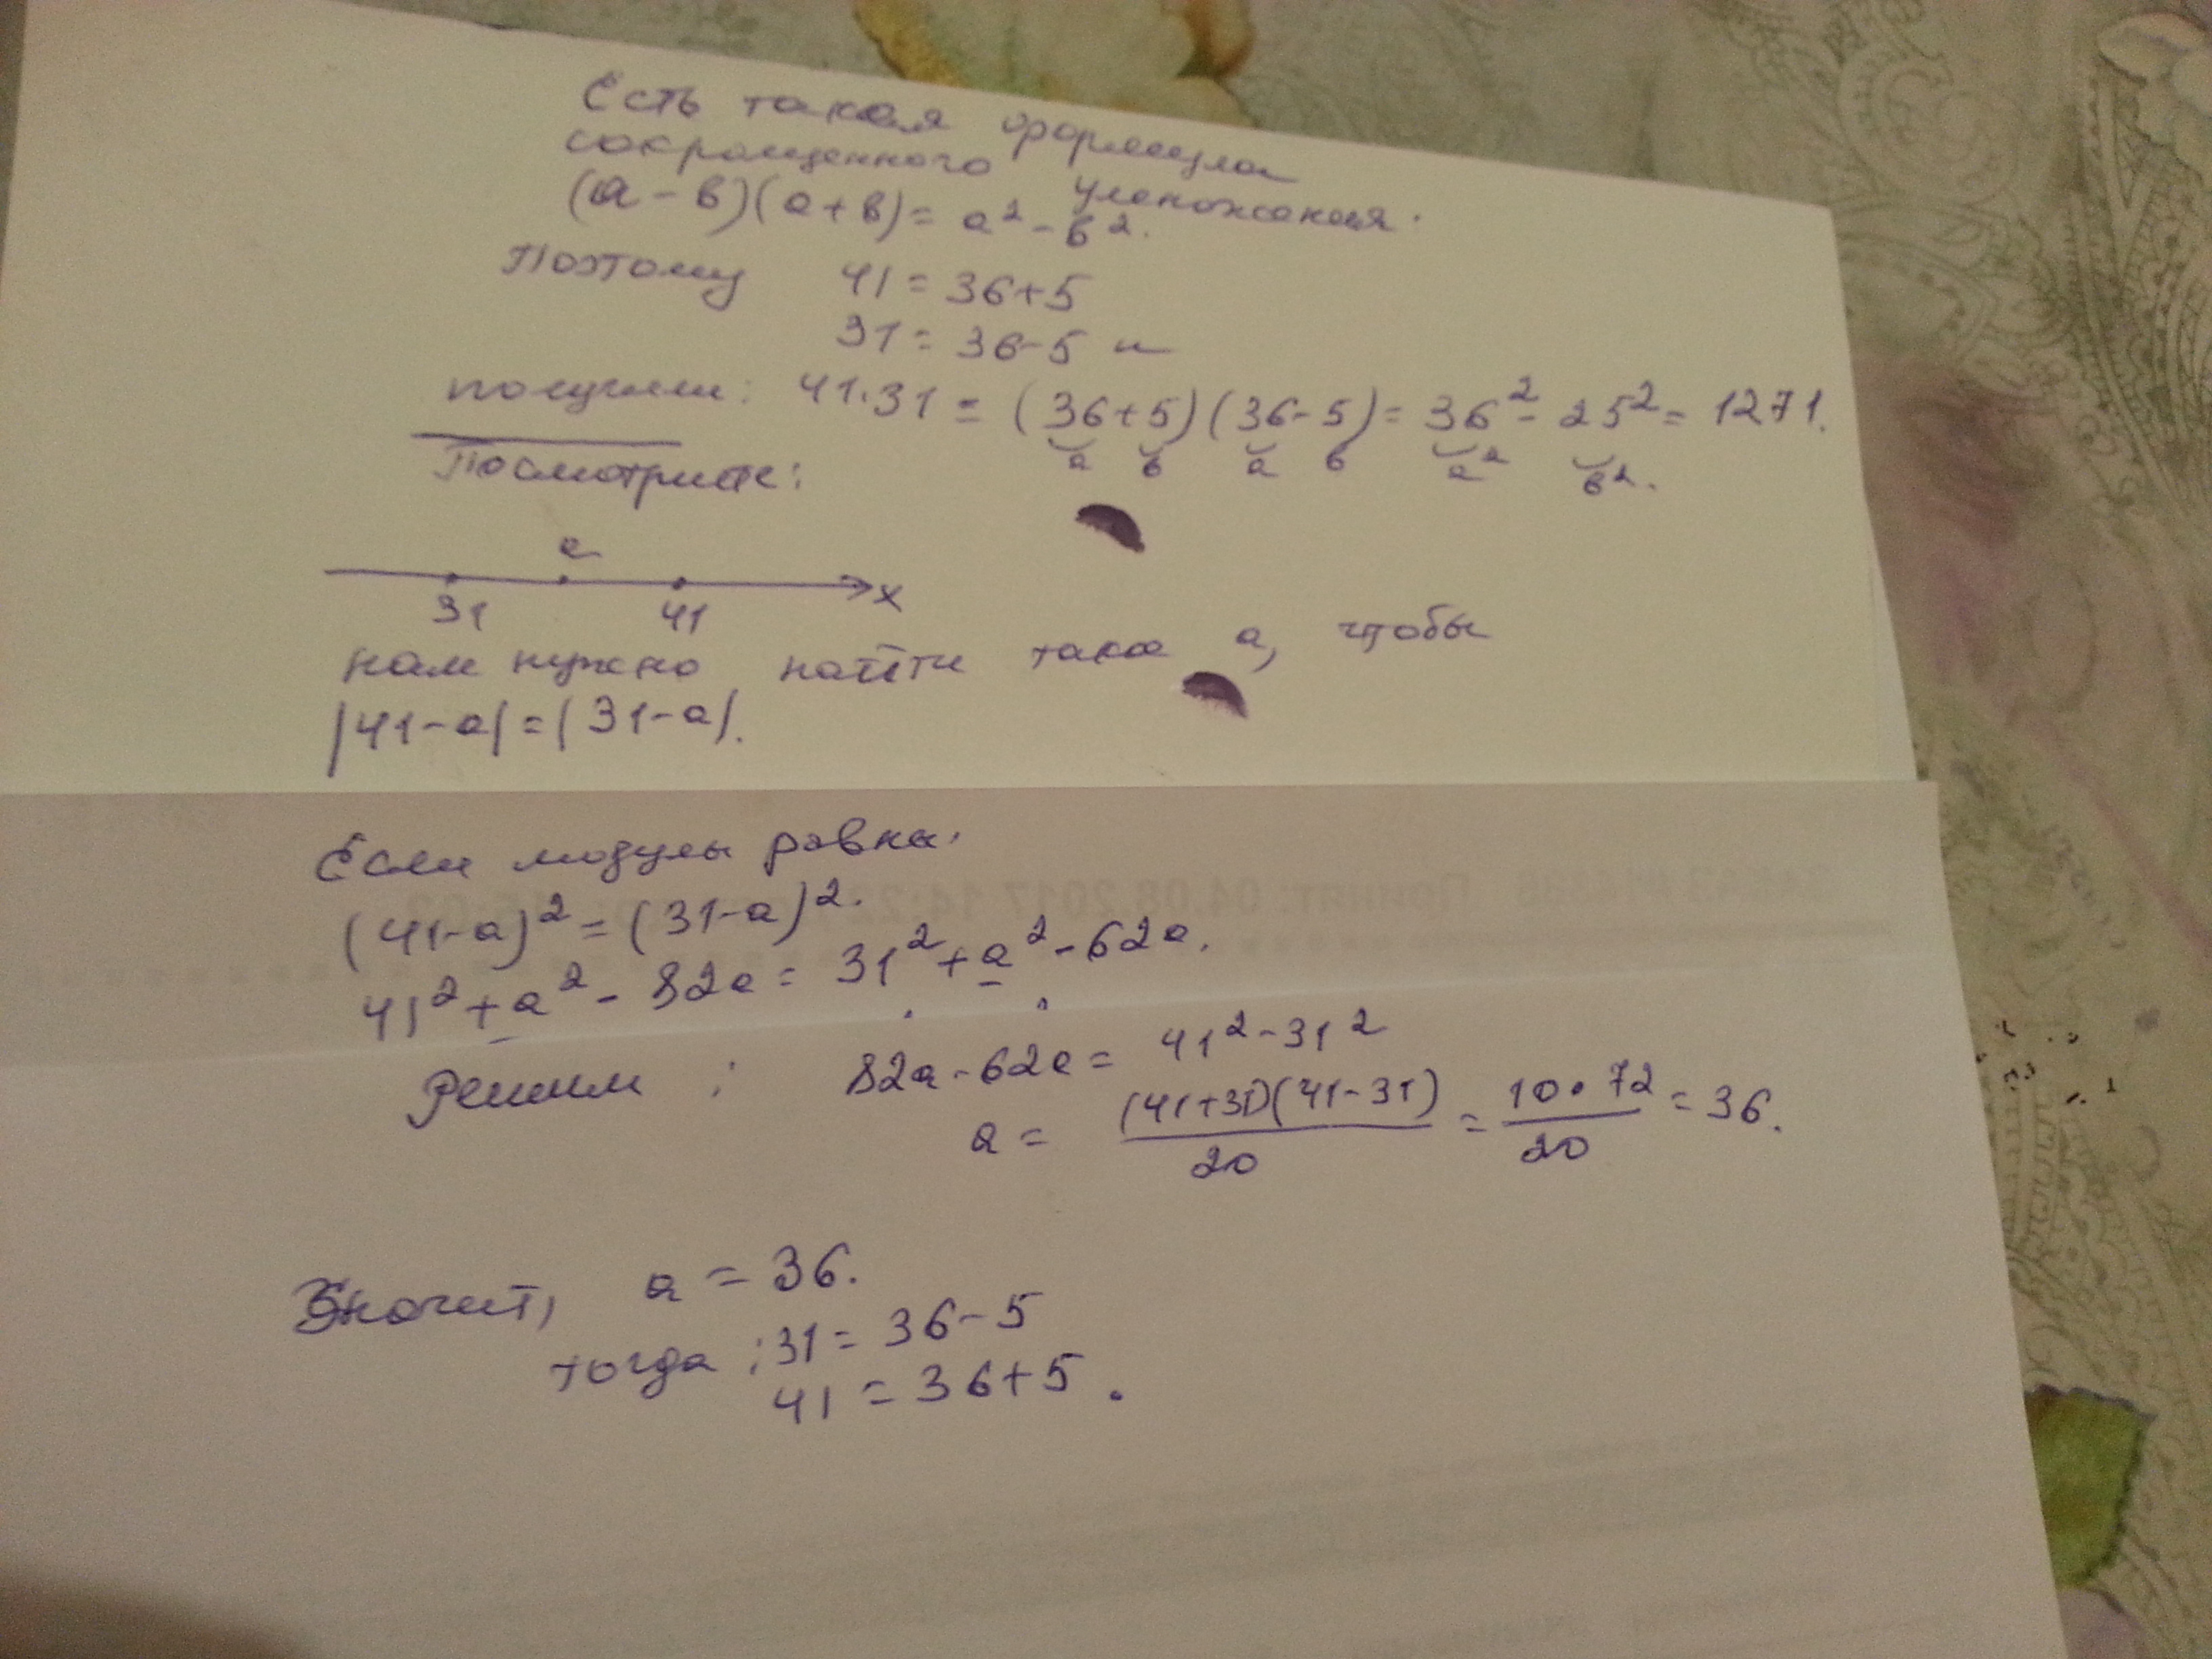 Есть такая формула
сокращенного умножения.
(a - в)(a + в) = a² - в².
Поэтому 41 = 36+5
31 = 36-5 и
получим: 41·31 = (36+5)(36-5) = 36² - 25² = 1271.
a в a в a² в².
Посмотрите:
a
31 41 x
нам нужно найти такое a, чтобы
|41-a| = |31-a|.
Если модули равны.
(41-a)² = (31-a)².
41² + a² - 82a = 31² + a² - 62a.
Решим : 82a - 62a = 41² - 31²
a = (41+31)(41-31)/20 = 10·72/20 = 36.
Значит, a = 36.
тогда : 31 = 36-5
41 = 36+5.